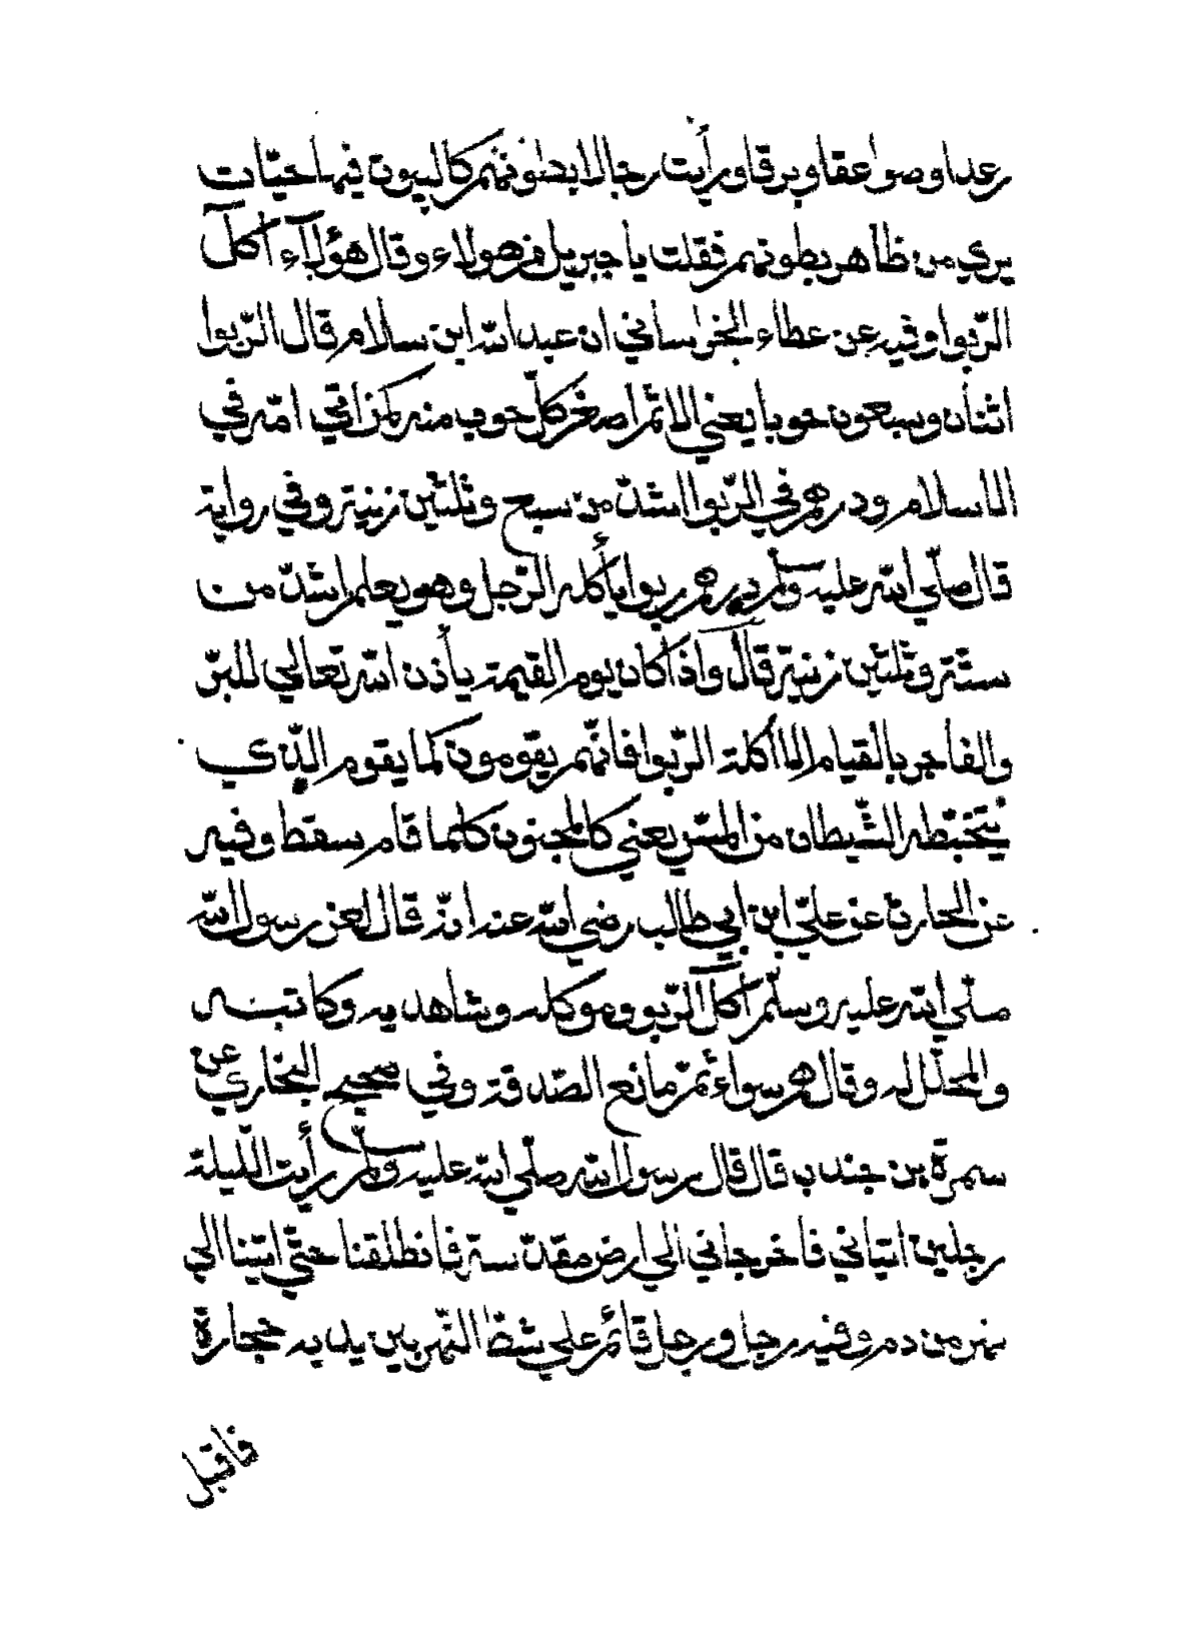 رعدا وصواعقا وبرقا ورأيت رجالا بطونهم كالبيوت فيها حيّات
يري من ظاهر بطونهم فقلت يا جبريل من هولاء وقال هؤلآء آكل
الرّبوا وفيه عن عطاء الخراساني ان عبد الله ابن سلام قال الرّبوا
اثنان وسبعون حوبا يعني الاثم اصغر كلّ حوب منه كمن اتي امّه في
الاسلام ودرهم في الرّبوا اشدّ من سبع وثلثين زنية وفي رواية
قال صلّي الله عليه وسلّم درهم ربوا يأكله الرّجل وهو يعلم اشدّ من
ستّة وثلثين زنية قال واذا كان يوم القيمة يأذن الله تعالي للبرّ
والفاجر بالقيام الا اكلة الرّبوا فانّهم يقومون كما يقوم الّذي
يتخبّطه الشّيطان من المسّ يعني كالمجنون كلما قام سقط وفيه
عن الحارث عن عليّ ابن ابي طالب رضي الله عنه انّه قال لعن رسول الله
صلّي الله عليه وسلّم آكل الرّبو وموكله وشاهديه وكاتبه
والمحلّل له وقال هم سواء ثمّ مانع الصّدقة وفي صحيح البخاري عن
سمرة بن جندب قال قال رسول الله صلّي الله عليه وسلّم رأيت اللّيلة
رجلين اتياني فاخرجاني الي ارض مقدّسة فانطلقنا حتّي اتينا الي
نهر من دم وفيه رجل ورجل قائم علي شطّ النّهر بين يديه حجارة
فاقبل